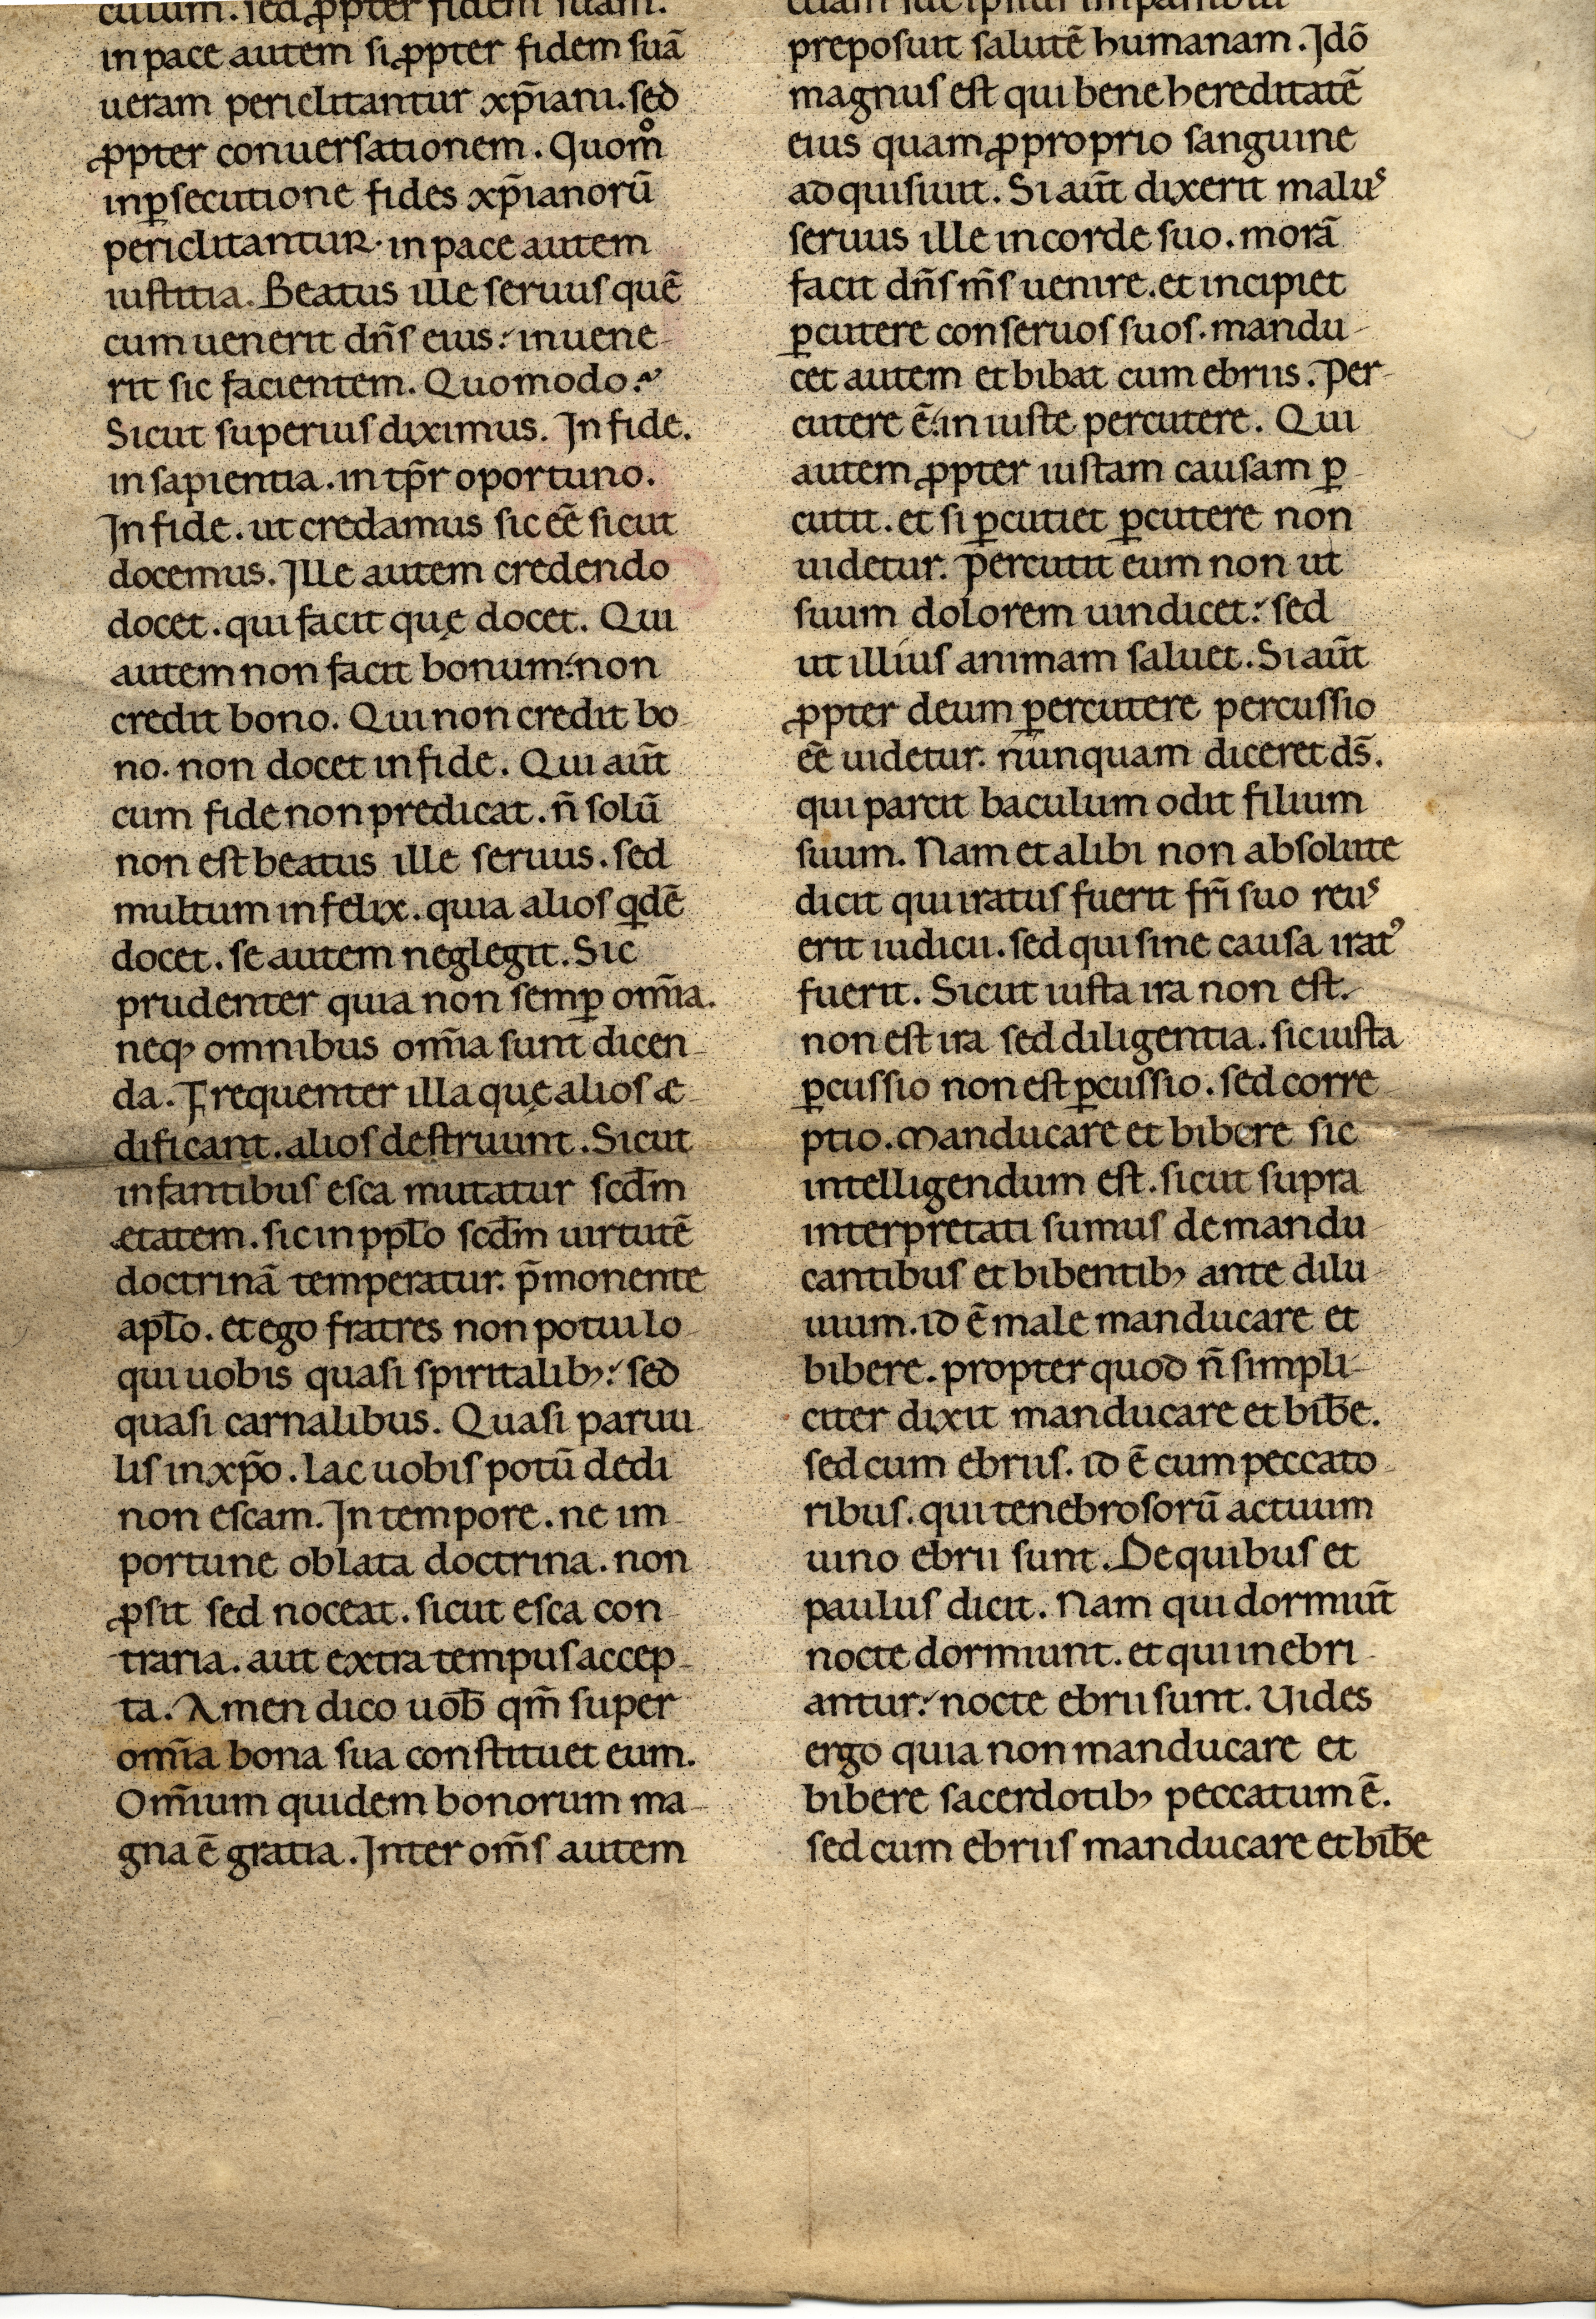 culum. sed ꝓpter fidem suam.
in pace autem si ꝓpter fidem suā
ueram periclitantur xp̄iani. sed
ꝓpter conuersationem. Quom̊
in ꝑsecutione fides xp̄ianorū
periclitantur. in pace autem
iustitia. Beatus ille seruus quē
cum uenerit dn̄s eius: inuene-
rit sic facientem. Quomodo?
Sicut superius diximus. In fide.
in sapientia. in tp̄r oportuno.
In fide. ut credamus sic eē sicut
docemus. Ille autem credendo
docet. qui facit quę docet. Qui
autem non facit bonum: non
credit bono. Qui non credit bo-
no. non docet in fide. Qui aūt
cum fide non predicat. n̄ solū
non est beatus ille seruus. sed
multum infelix. quia alios qdē
docet. se autem neglegit. Sic
prudenter quia non semꝑ om̄ia.
neqꝫ omnibus om̄ia sunt dicen-
da. Frequenter illa quę alios æ-
dificant. alios destruunt. Sicut
infantibus esca mutatur scđm
ętatem. sic in pplo̅ scđm uirtutē
doctrinā temperatur. p̄monente
aplo̅. et ego fratres non potui lo-
qui uobis quasi spiritalibꝫ: sed
quasi carnalibus. Quasi paruu-
lis in xp̄o. lac uobis potū dedi
non escam. In tempore. ne im-
portune oblata doctrina. non
ꝓsit sed noceat. sicut esca con-
traria. aut extra tempus accep-
ta. Amen dico uob̄ qm̄ super
om̄ia bona sua constituet eum.
Om̄ium quidem bonorum ma-
gna ē gratia. Inter om̄s autem
preposuit salutē humanam. Idō
magnus est qui bene hereditatē
eius quam ꝓ proprio sanguine
adquisiuit. Si aūt dixerit malus
seruus ille in corde suo. morā
facit dn̄s m̄s uenire. et incipiet
ꝑcutere conseruos suos. mandu-
cet autem et bibat cum ebriis. Per-
cutere ē: iniuste percutere. Qui
autem ꝓpter iustam causam ꝑ-
cutit. et si ꝑcutiet ꝑcutere non
uidetur. Percutit eum non ut
suum dolorem uindicet: sed
ut illius animam saluet. Si aūt
ꝓpter deum ꝑercutere percussio
eē uidetur. nunquam diceret ds̄.
qui parcit baculum odit filium
suum. Nam et alibi non absolute
dicit qui iratus fuerit fr̄i suo reus
erit iudicii. sed qui sine causa irat᾽
fuerit. Sicut iusta ira non est.
non est ira sed diligentia. sic iusta
ꝑcussio non est ꝑcussio. sed corre-
ptio. Manducare et bibere sic
intelligendum est. sicut supra
interpretati sumus de mandu-
cantibus et bibentibꝫ ante dilu-
uium. id ē male manducare et
bibere. propter quod n̄ simpli-
citer dixit manducare et bib̄e.
sed cum ebriis. id ē cum peccato-
ribus. qui tenebrosorū actuum
uino ebrii sunt. De quibus et
paulus dicit. Nam qui dormiūt
nocte dormiunt. et qui inebri-
antur: nocte ebrii sunt. Vides
ergo quia non manducare et
bibere sacerdotibꝫ peccatum ē.
sed cum ebriis manducare et bib̄e